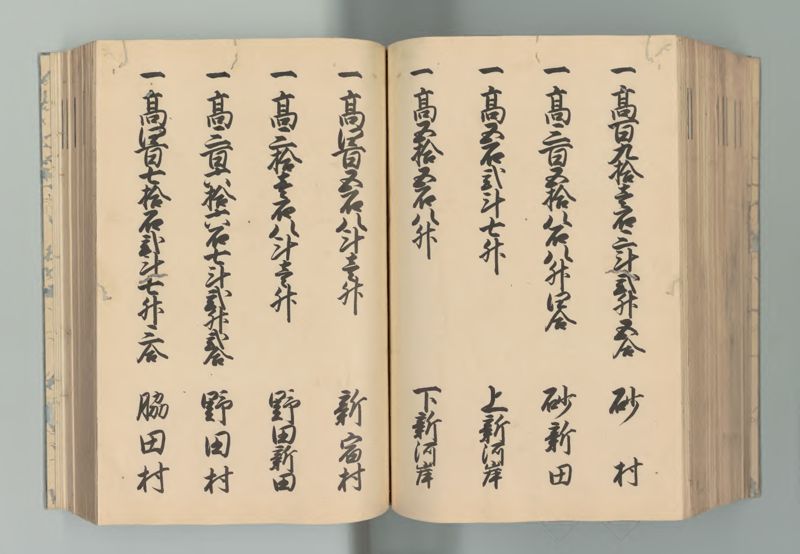 一高百九拾壱石二斗弐升五合 砂村
一高二百五拾八石八升四合 砂新田
一高五石弐斗七升 上新河岸
一高五拾五石八升 下新河岸
一高四百五石八斗壱升 新宿村
一高二拾壱石八斗壱升 野田新田
一高二百八拾六石七斗弐升弐合 野田村
一高四百七拾石弐斗七升二合 脇田村